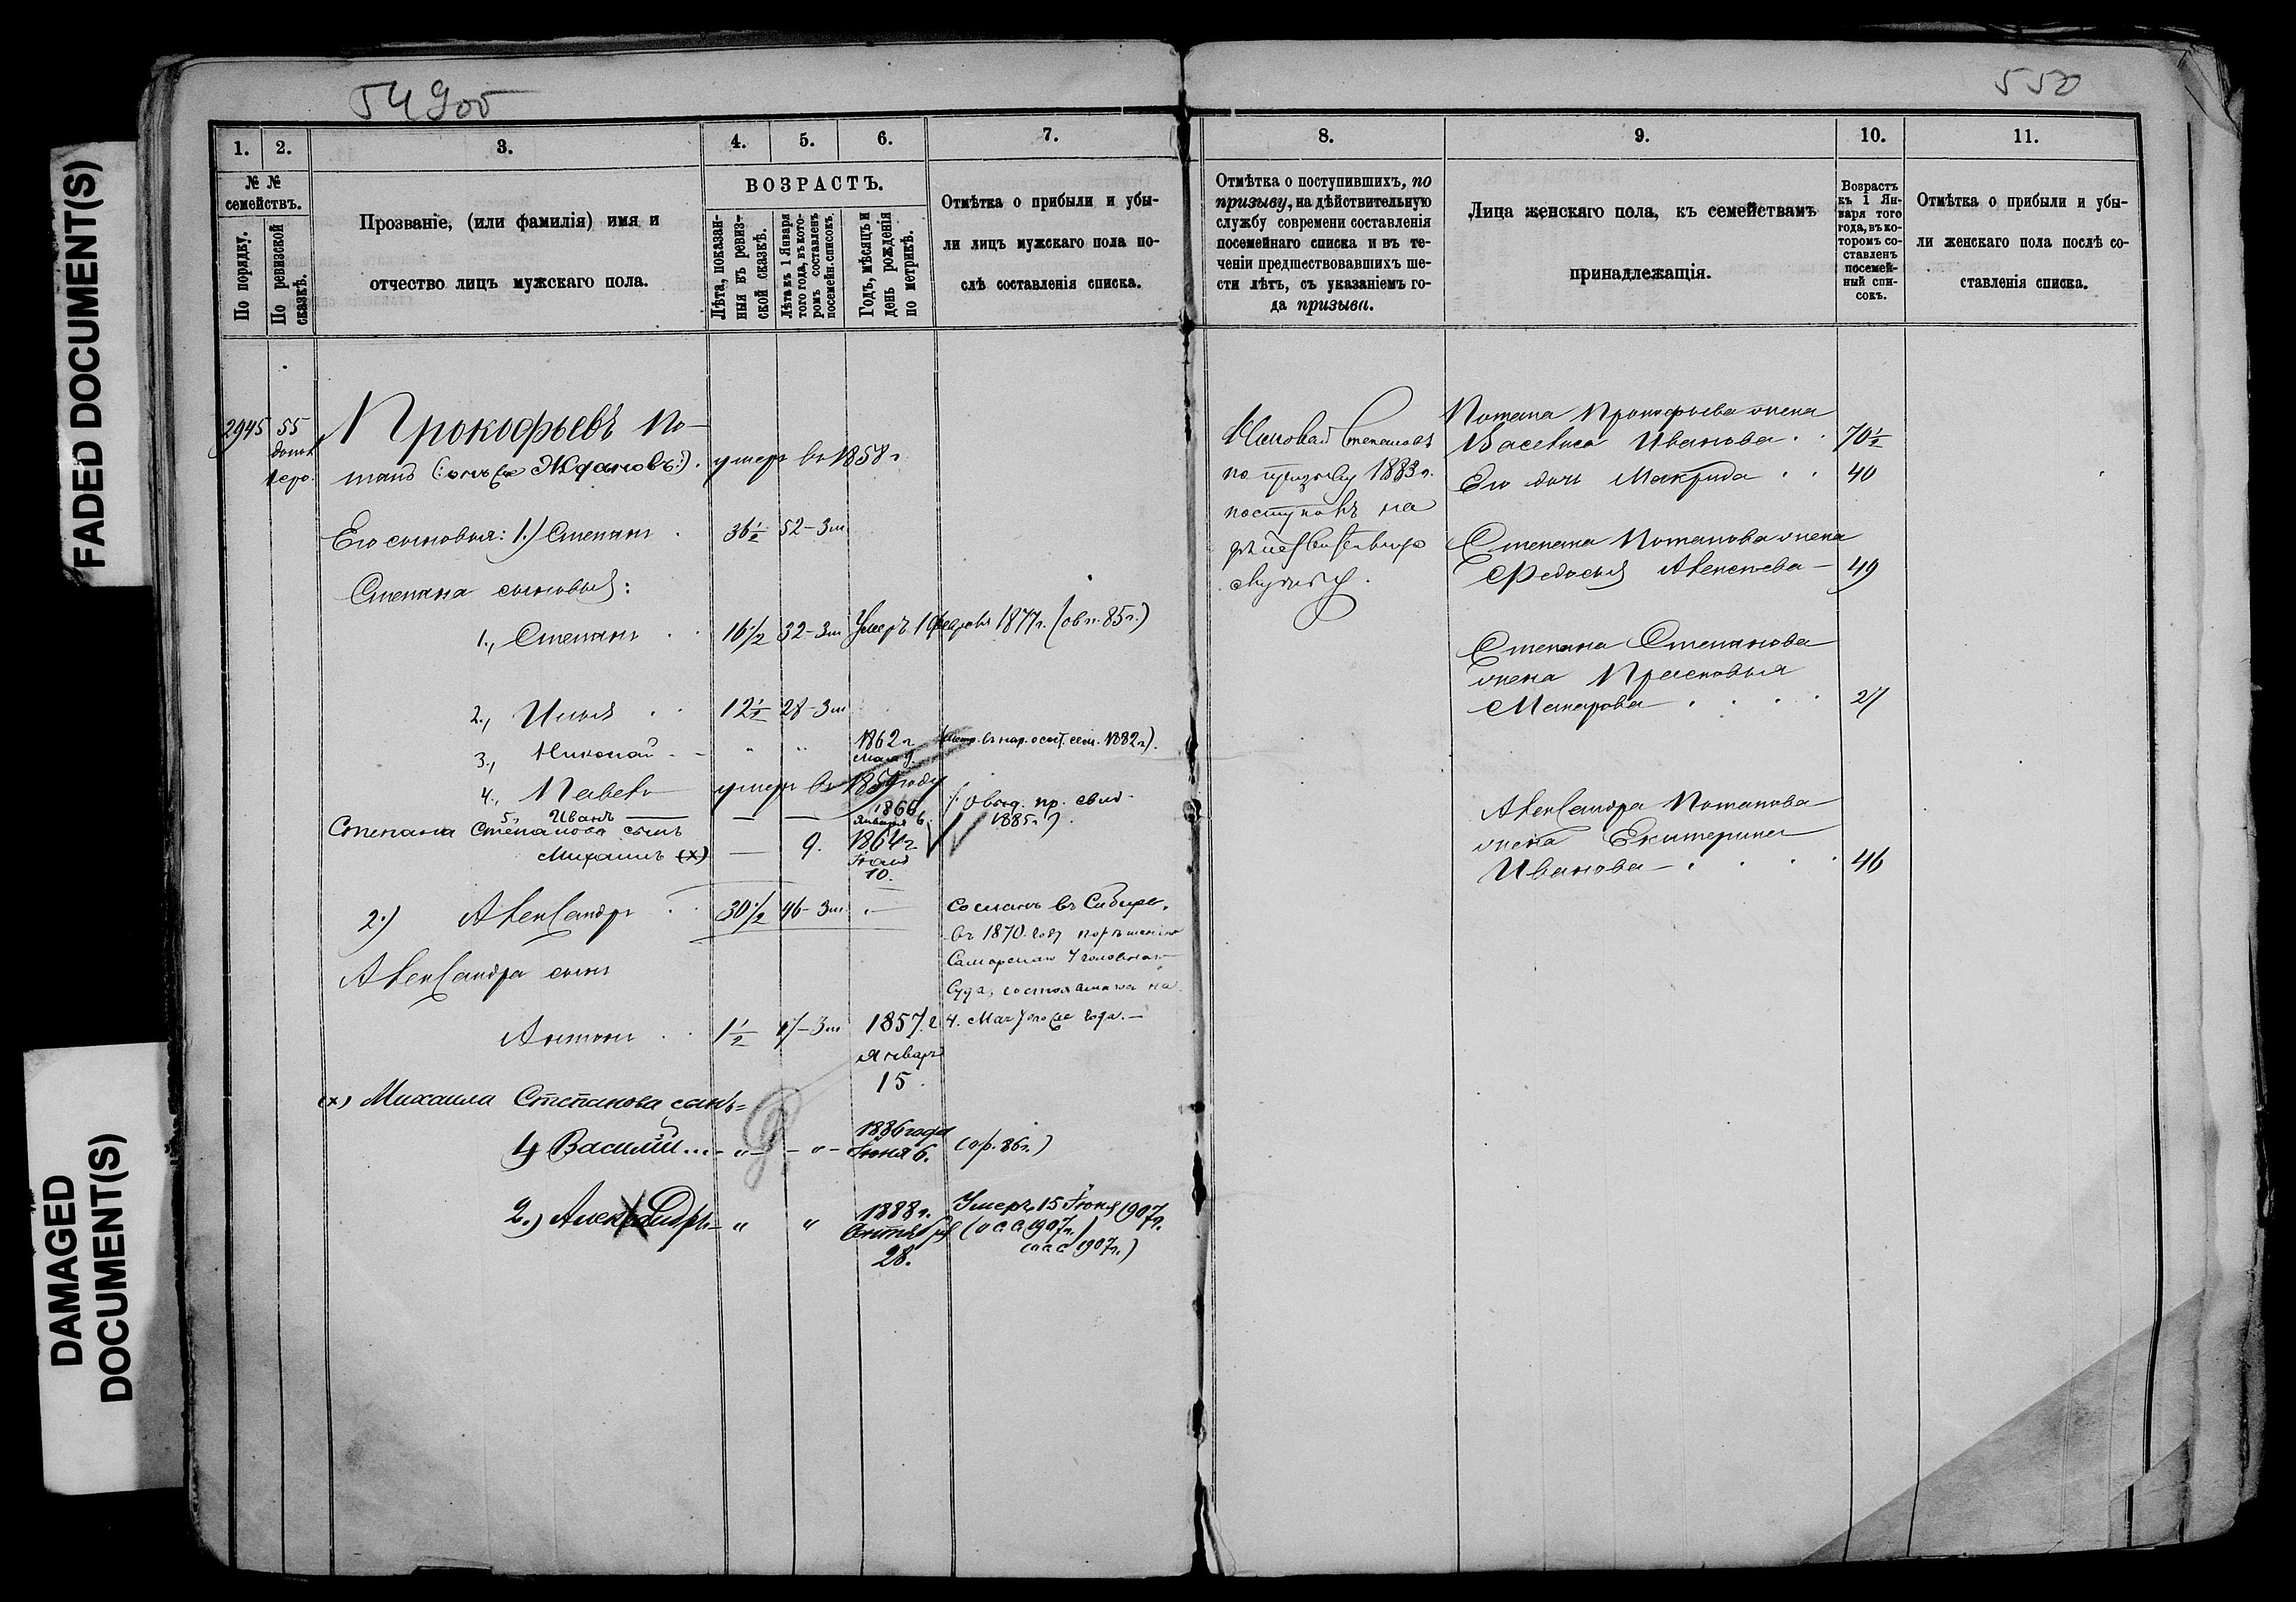 FADED DOCUMENT(S)
DAMAGED
DOCUMENT(S)
549об
1.
2.
3.
4.
5.
6.
7.
№ №
семействъ.
По порядку.
По ревизской
сказкѣ.
Прозваніе, (или фамилія) имя и
отчество лицъ мужскаго пола.
ВОЗРАСТЪ.
Лѣта, показан-
ныя въ ревиз-
ской сказкѣ.
Лѣта къ 1 Января
того года, въ кото-
ромъ составленъ
посемейн. списокъ.
Годъ, мѣсяцъ и
день рожденія
по метрикѣ.
Отмѣтка о прибыли и убы-
ли лицъ мужскаго пола по-
слѣ составленія списка.
2945
55
Прокофьевъ По-
тапъ (онъ же Ждановъ). умеръ въ 1858 г.
Его сыновья: 1.) Степанъ . 36½ 52-3м
Степана сыновья:
1., Степанъ . . 16½ 32-3м Умеръ 1 февраля 1877г. (ов п. 85г.)
2., Илья . . 12½ 28-3м
3., Николай - - " " 1862 г. мая 9. 1882 г).
4., Павелъ умеръ въ 1859 году
5, Иванъ — — — 1866 января 6. пр. свид-
1885 г).
Степана Степанова сынъ
Михаилъ (х) — 9. 1864 г.
10.
2.) Александръ . . 30½ 46-3м — Сосланъ въ Сибирь,
въ 1870 году по рѣшенію
Самарской Уголовной
Суда, состоявшагося на
4. Марта того же года. —
Александра сынъ
Антонъ . . 1½ 17-3м 1857. г.
Январь
15.
(х) Михаила Степанова сынъ=
1) Василій... - " - - " - 1886 года
Іюня 6. (ор. 86г.)
2.) Александръ - " " 1888 г. Умеръ 15 Іюня 1907 г.
Октября (о с с 1907 г.)
28. (о с с 1907 г.)
550
8.
9.
10.
11.
Отмѣтка о поступившихъ, по
призыву, на дѣйствительную
службу современи составленія
посемейнаго списка и въ те-
ченіи предшествовавшихъ ше-
сти лѣтъ, съ указаніемъ го-
да призыва.
Лица женскаго пола, къ семействамъ
принадлежащія.
Возрастъ
къ 1 Ян-
варя того
года, въ ко-
торомъ со-
ставленъ
посемей-
ный спи-
сокъ.
Отмѣтка о прибыли и убы-
ли женскаго пола послѣ со-
ставленія списка.
Николай Степановъ
по призыву 1883 г.
поступилъ на
дѣйствительную
службу.
Потапа Прокофьева жена
Василиса Иванова . . 70½
Его дочь Макрида . . 40
Степана Потапова жена
Федосья Алексѣева — 49
Степана Степанова
жена Прасковья
Макарова . . . . 27
Александра Потапова
жена Екатерина
Иванова . . . . 46